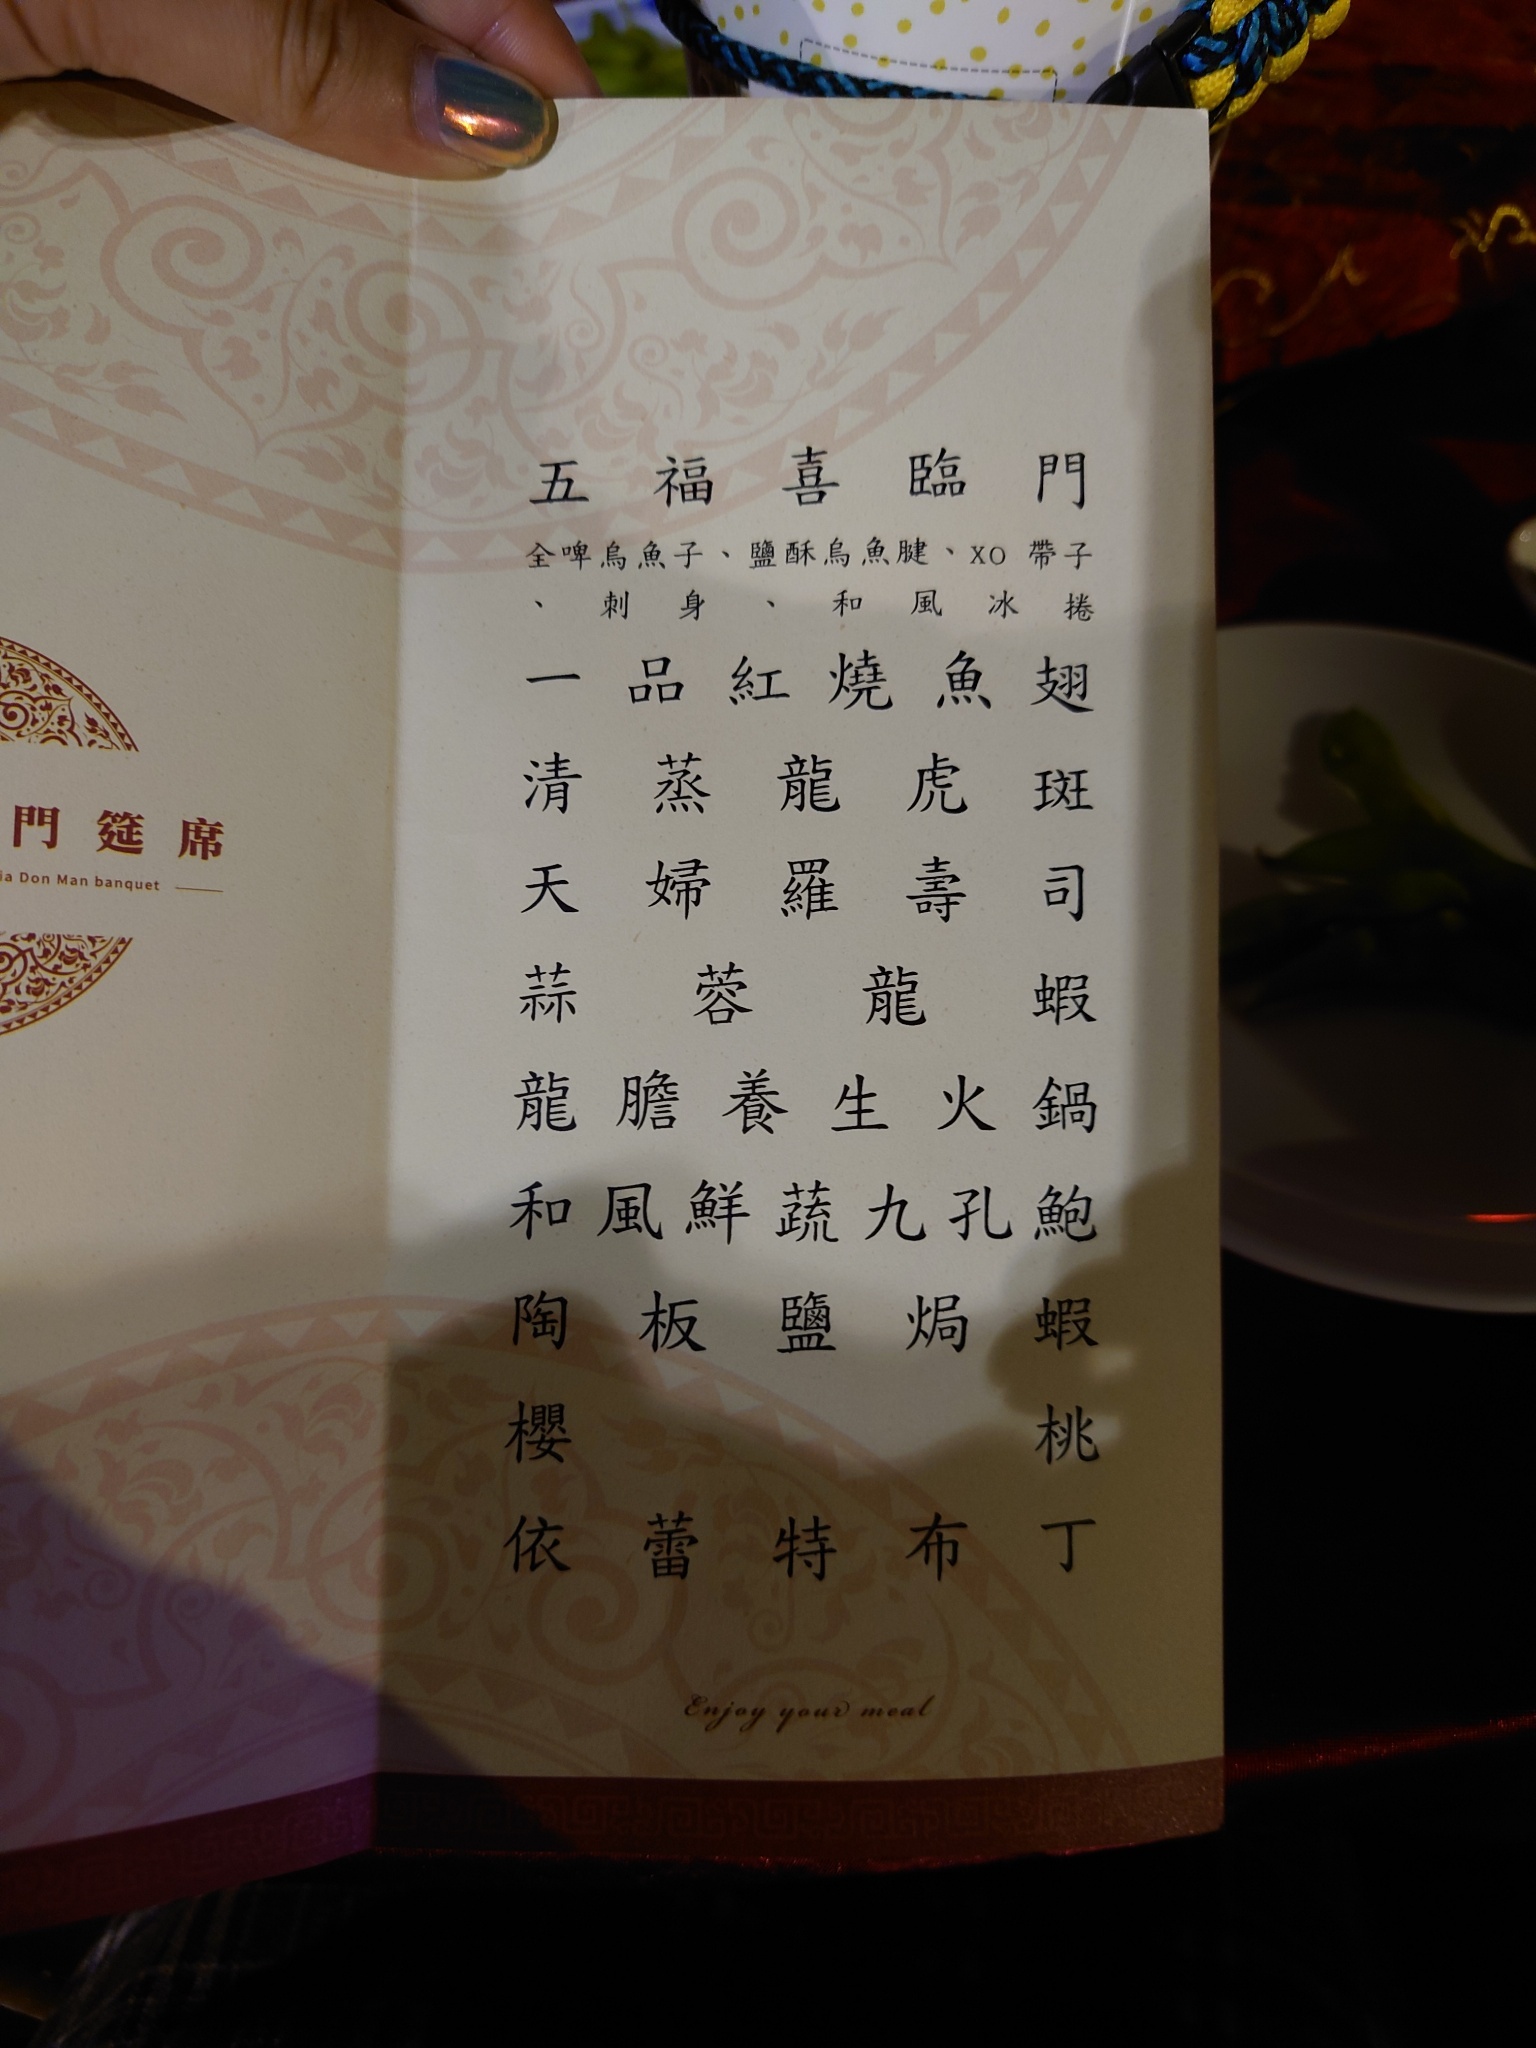 五福喜臨門
全啤烏魚子、鹽酥烏魚腱、XO帶子
、刺身、和風冰捲
一品紅燒魚翅
清蒸龍虎斑
天婦羅壽司
蒜蓉龍蝦
龍膽養生火鍋
和風鮮蔬九孔鮑
陶板鹽焗蝦
櫻桃
依蕾特布丁
Enjoy your meal
門筵席
ia Don Man banquet